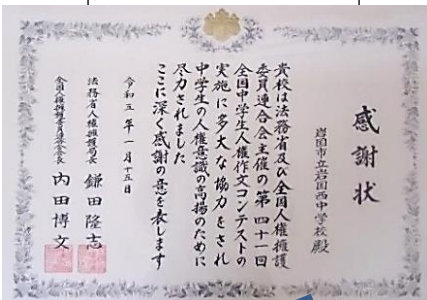 感謝状
岩国市立岩国西中学校 殿
貴校は法務省及び全国人権擁護
委員連合会主催の第四十一回
全国中学生人権作文コンテストの
実施に多大な協力をされ
中学生の人権意識の高揚のために
尽力されました
ここに深く感謝の意を表します
令和五年一月十五日
法務省人権擁護局長 鎌田隆志
全国人権擁護委員連合会長 内田博文